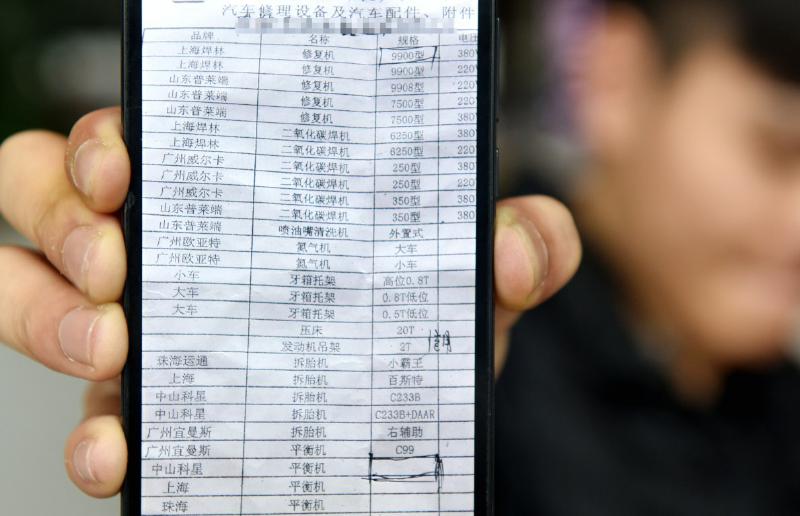 汽车修理设备及汽车配件、附件
品牌 名称 规格 电压
上海焊林 修复机 9900型 380V
上海焊林 修复机 9900型 220V
山东普莱端 修复机 9908型 220
山东普莱端 修复机 7500型 220
山东普莱端 修复机 7500型 380
上海焊林 二氧化碳焊机 6250型 380
上海焊林 二氧化碳焊机 6250型 220
广州威尔卡 二氧化碳焊机 250型 380
广州威尔卡 二氧化碳焊机 250型 220
广州威尔卡 二氧化碳焊机 350型 380
山东普莱端 二氧化碳焊机 350型 380
山东普莱端 喷油嘴清洗机 外置式
广州欧亚特 氮气机 大车
广州欧亚特 氮气机 小车
小车 牙箱托架 高位0.8T
大车 牙箱托架 0.8T低位
大车 牙箱托架 0.5T低位
压床 20T
发动机吊架 2T
珠海运通 拆胎机 小霸王
上海 拆胎机 百斯特
中山科星 拆胎机 C233B
中山科星 拆胎机 C233B+DAAR
广州宜曼斯 拆胎机 右辅助
广州宜曼斯 平衡机 C99
中山科星 平衡机
上海 平衡机
珠海 平衡机